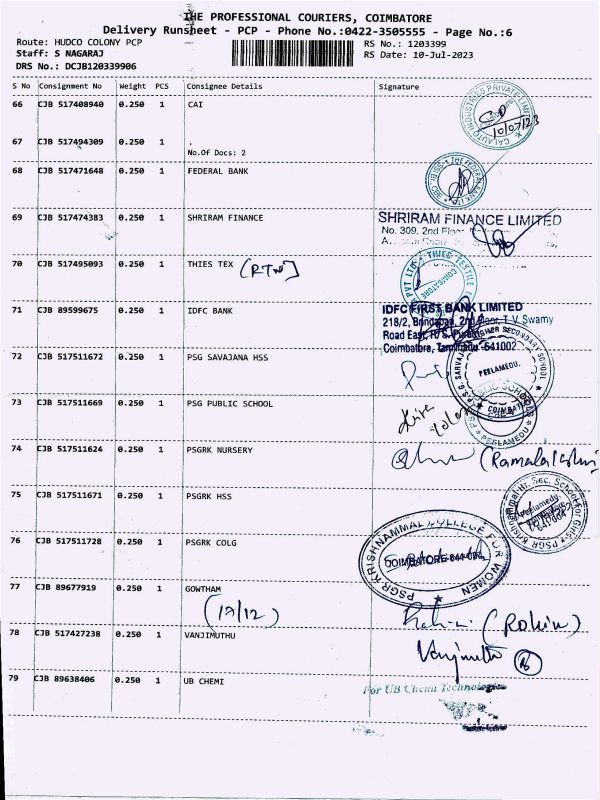 THE PROFESSIONAL COURIERS, COIMBATORE
Delivery Runsheet - PCP - Phone No.:0422-3505555 - Page No.:6
Route: HUDCO COLONY PCP
RS No.: 1203399
Staff: S NAGARAJ
RS Date: 10-Jul-2023
DRS No.: DCJB120339906
S No Consignment No Weight PCS Consignee Details Signature
66 CJB 517408940 0.250 1 CAI
10/07/23
67 CJB 517494309 0.250 1 .
No.Of Docs: 2
68 CJB 517471648 0.250 1 FEDERAL BANK
69 CJB 517474383 0.250 1 SHRIRAM FINANCE
SHRIRAM FINANCE LIMITED
No. 309, 2nd Floor
70 CJB 517495093 0.250 1 THIES TEX (RTN)
71 CJB 89599675 0.250 1 IDFC BANK
IDFC FIRST BANK LIMITED
218/2, Brindavan, 2nd Floor, T V Swamy
Road East, R. S. Puram
Coimbatore, Tamilnadu - 641002
72 CJB 517511672 0.250 1 PSG SAVAJANA HSS
PEELAMEDU.
73 CJB 517511669 0.250 1 PSG PUBLIC SCHOOL
PEELAMEDU
74 CJB 517511624 0.250 1 PSGRK NURSERY
75 CJB 517511671 0.250 1 PSGRK HSS
76 CJB 517511728 0.250 1 PSGRK COLG
PSGR KRISHNAMMAL COLLEGE FOR WOMEN
77 CJB 89677919 0.250 1 GOWTHAM
(17/12)
(Rohin)
78 CJB 517427238 0.250 1 VANJIMUTHU
Vanjimuthu
79 CJB 89638406 0.250 1 UB CHEMI
For UB Chemi Technologies